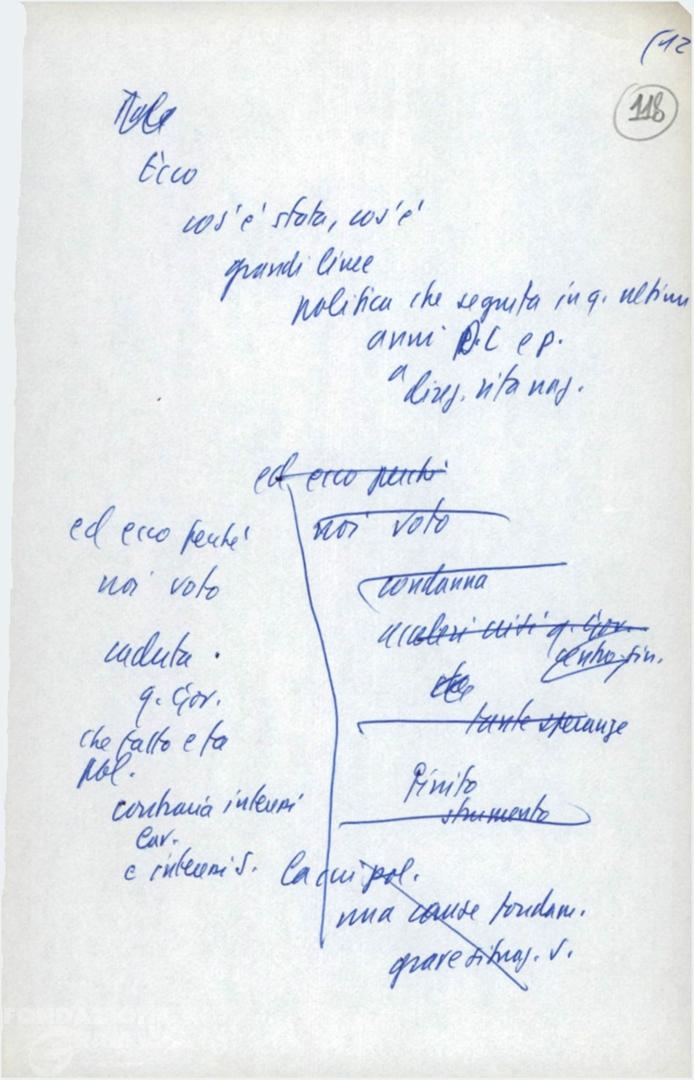 (12
118
Ecco
cos'è stata, cos'è
grandi linee
politica che seguita in q. ultimi
anni D.C e p.
a direz. vita naz.
ed ecco perché
noi voto
condanna
q. Gov.
centro-sin.
tante speranze
finito
strumento
ed ecco perché
noi voto
caduta.
q. Gov.
che fatto e fa
pol.
contraria interessi
Lav.
e interessi S.
la cui pol.
una cause fondam.
grave situaz. S.